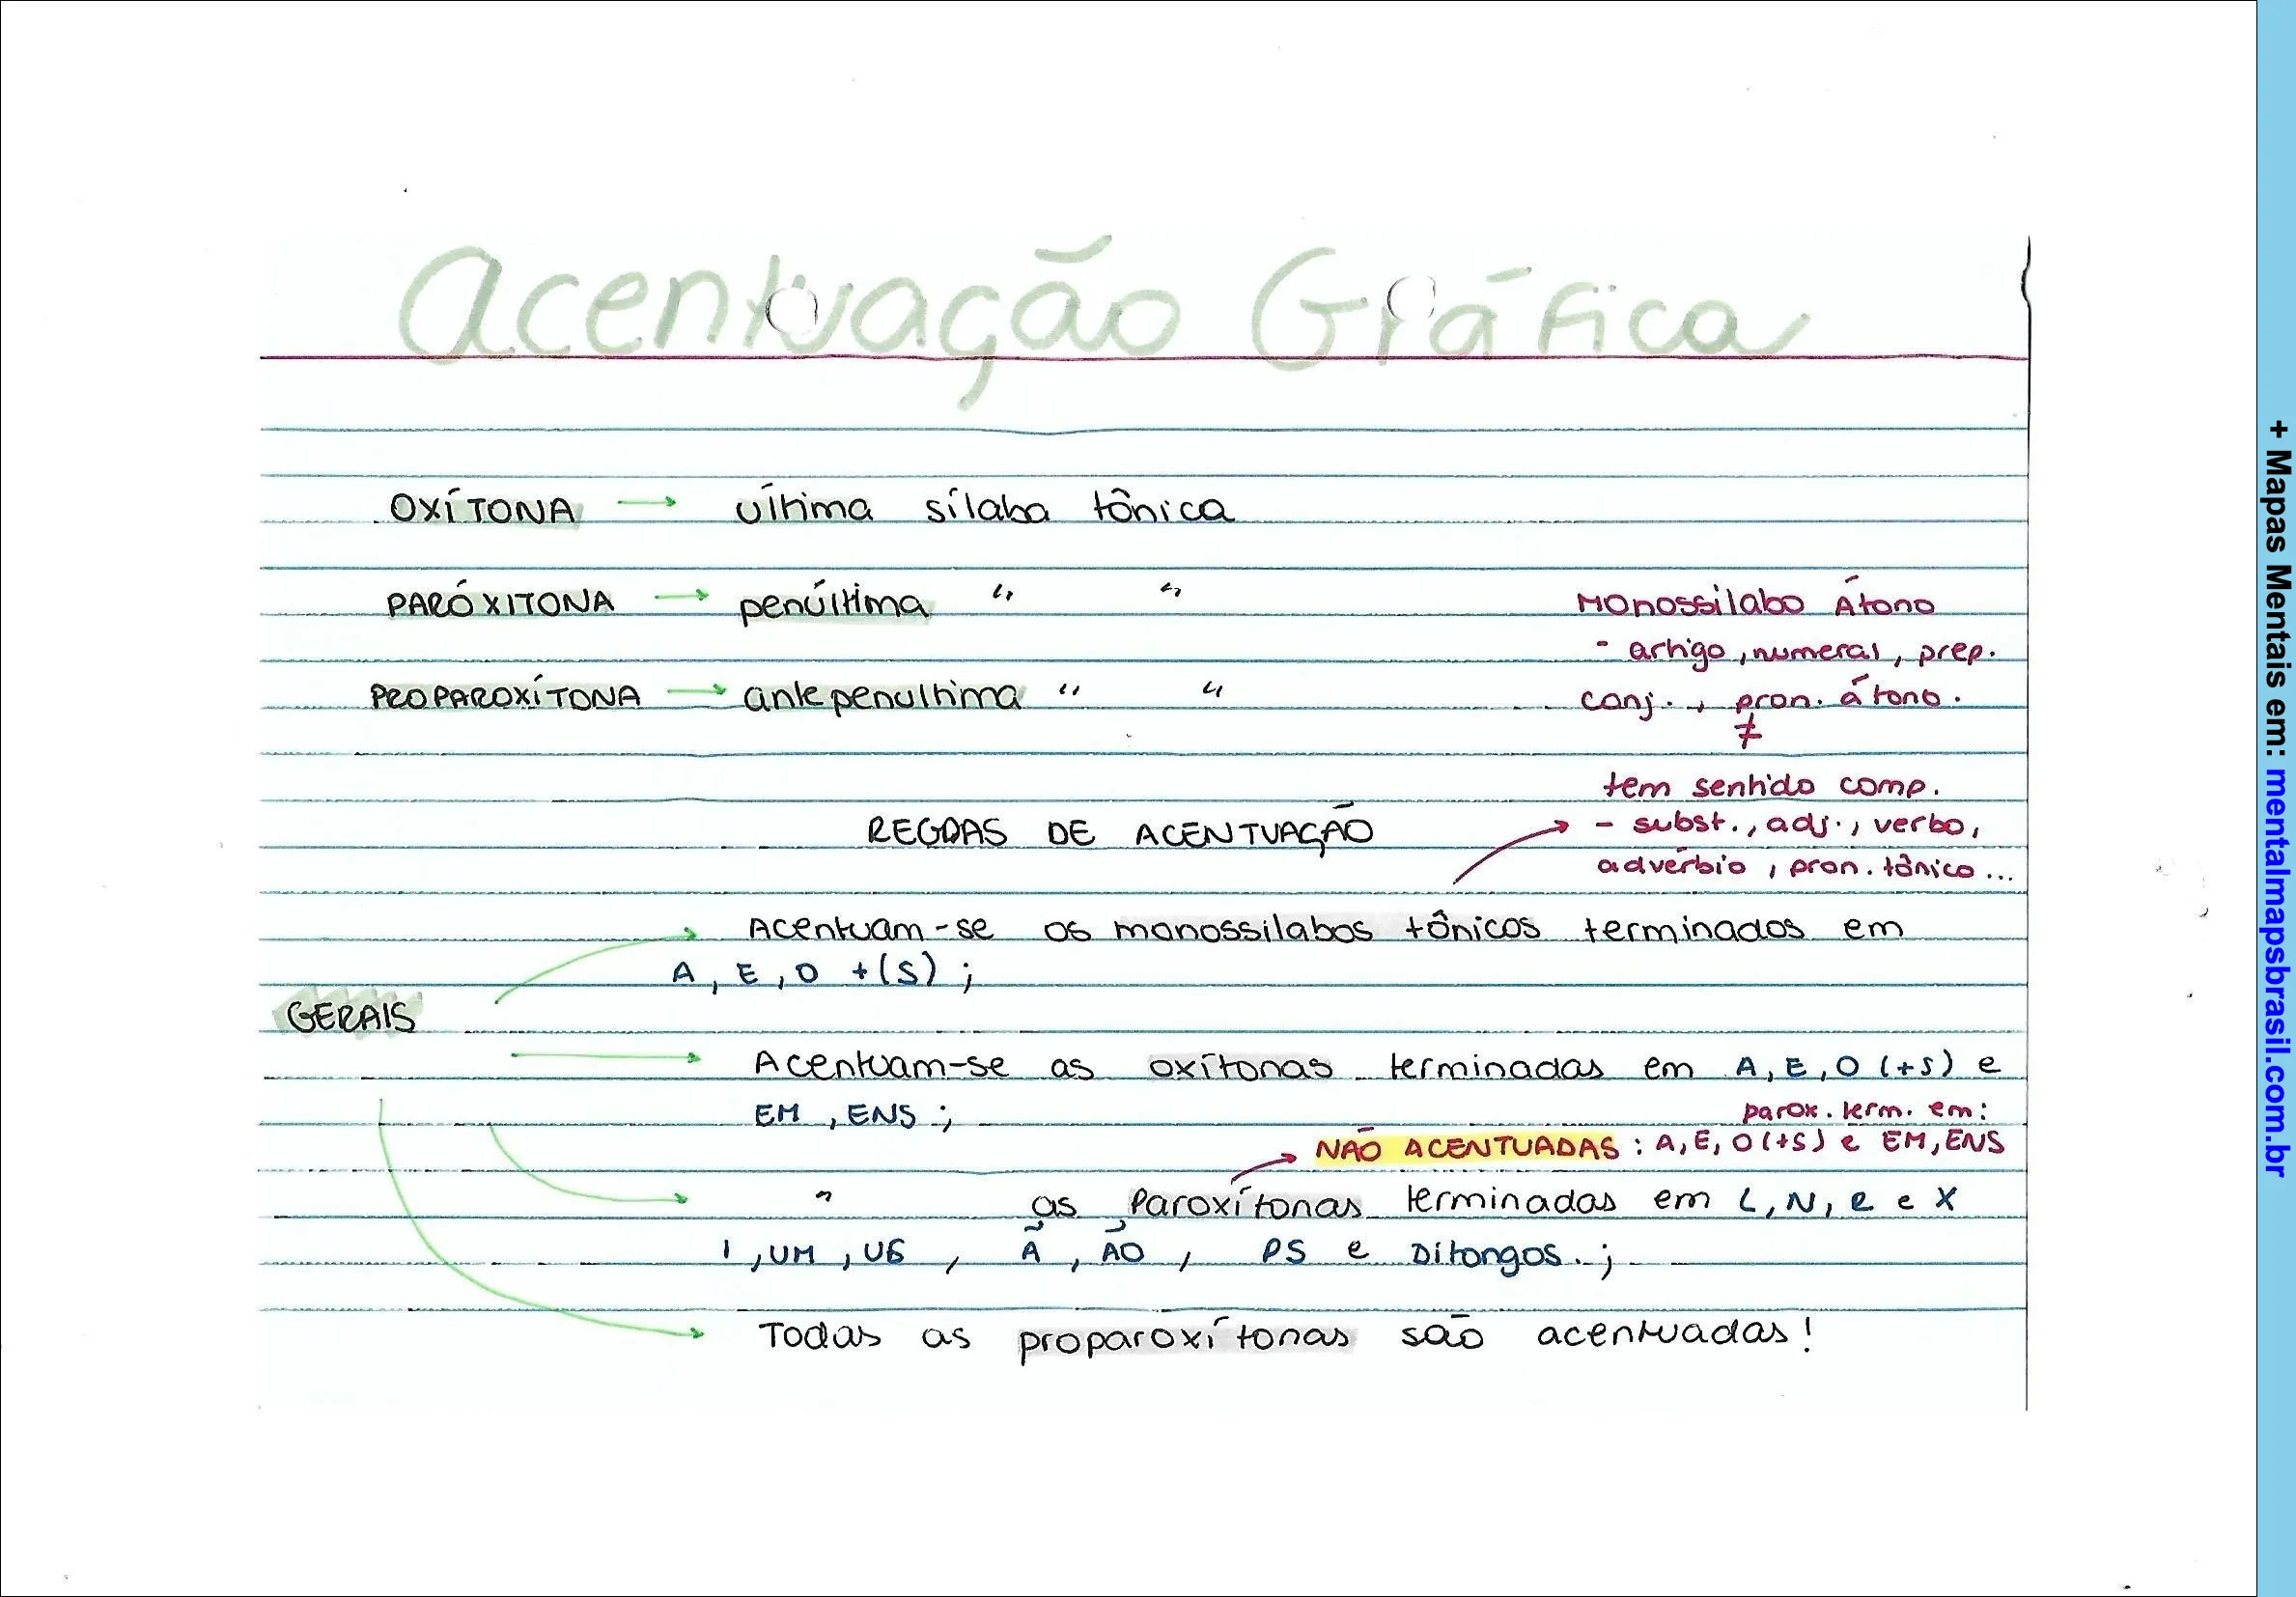 Acentuação Gráfica
OXÍTONA → última sílaba tônica
PARÓXITONA → penúltima " "
PROPAROXÍTONA → antepenultima " "
Monossílabo Átono
- artigo, numeral, prep.
conj., pron. átono.
≠
tem sentido comp.
- subst., adj., verbo,
advérbio, pron. tônico...
REGRAS DE ACENTUAÇÃO
Acentuam-se os monossilabos tônicos terminados em
A, E, O +(S);
GERAIS
Acentuam-se as oxítonas terminadas em A, E, O (+S) e
EM, ENS;
parox. term. em:
NÃO ACENTUADAS: A, E, O (+S) e EM, ENS
" as Paroxítonas terminadas em L, N, R e X
I, UM, US, Ã, ÃO, PS e Ditongos.;
Todas as proparoxítonas são acentuadas!
+ Mapas Mentais em: mentalmapsbrasil.com.br